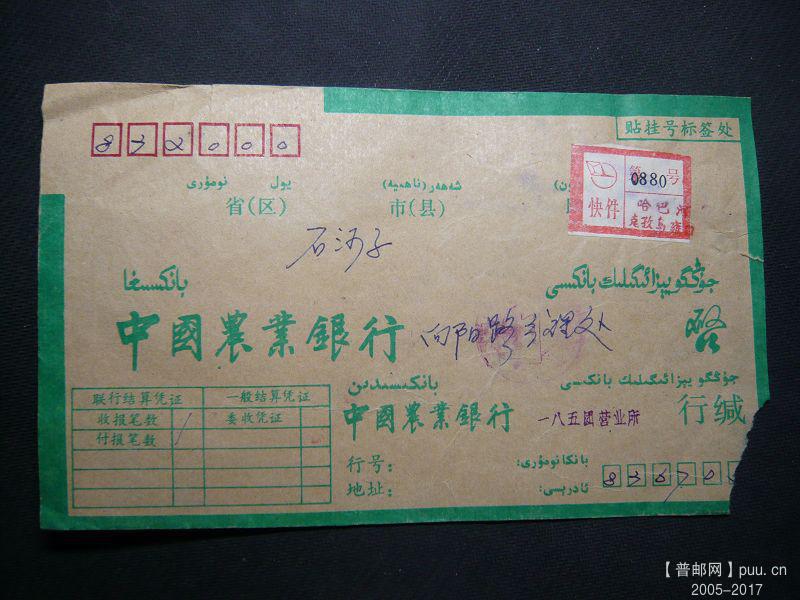 贴挂号标签处
832000
第 0880 号
快件 哈巴河
يول نومۇرى شەھەر (ناھىيە)
省(区) 市(县)
石河子
بانكىسىغا جۇڭگو يېزائىگىلىك بانكىسى
中國農業銀行 向阳路办理处 啓
联行结算凭证 一般结算凭证
收报笔数 委收凭证
付报笔数
بانكىسىدىن جۇڭگو يېزائىگىلىك بانكىسى
中國農業銀行 一八五团营业所 行缄
行号: بانكا نومۇرى:
地址: ئادرېسى:
83670
【普邮网】puu.cn
2005-2017